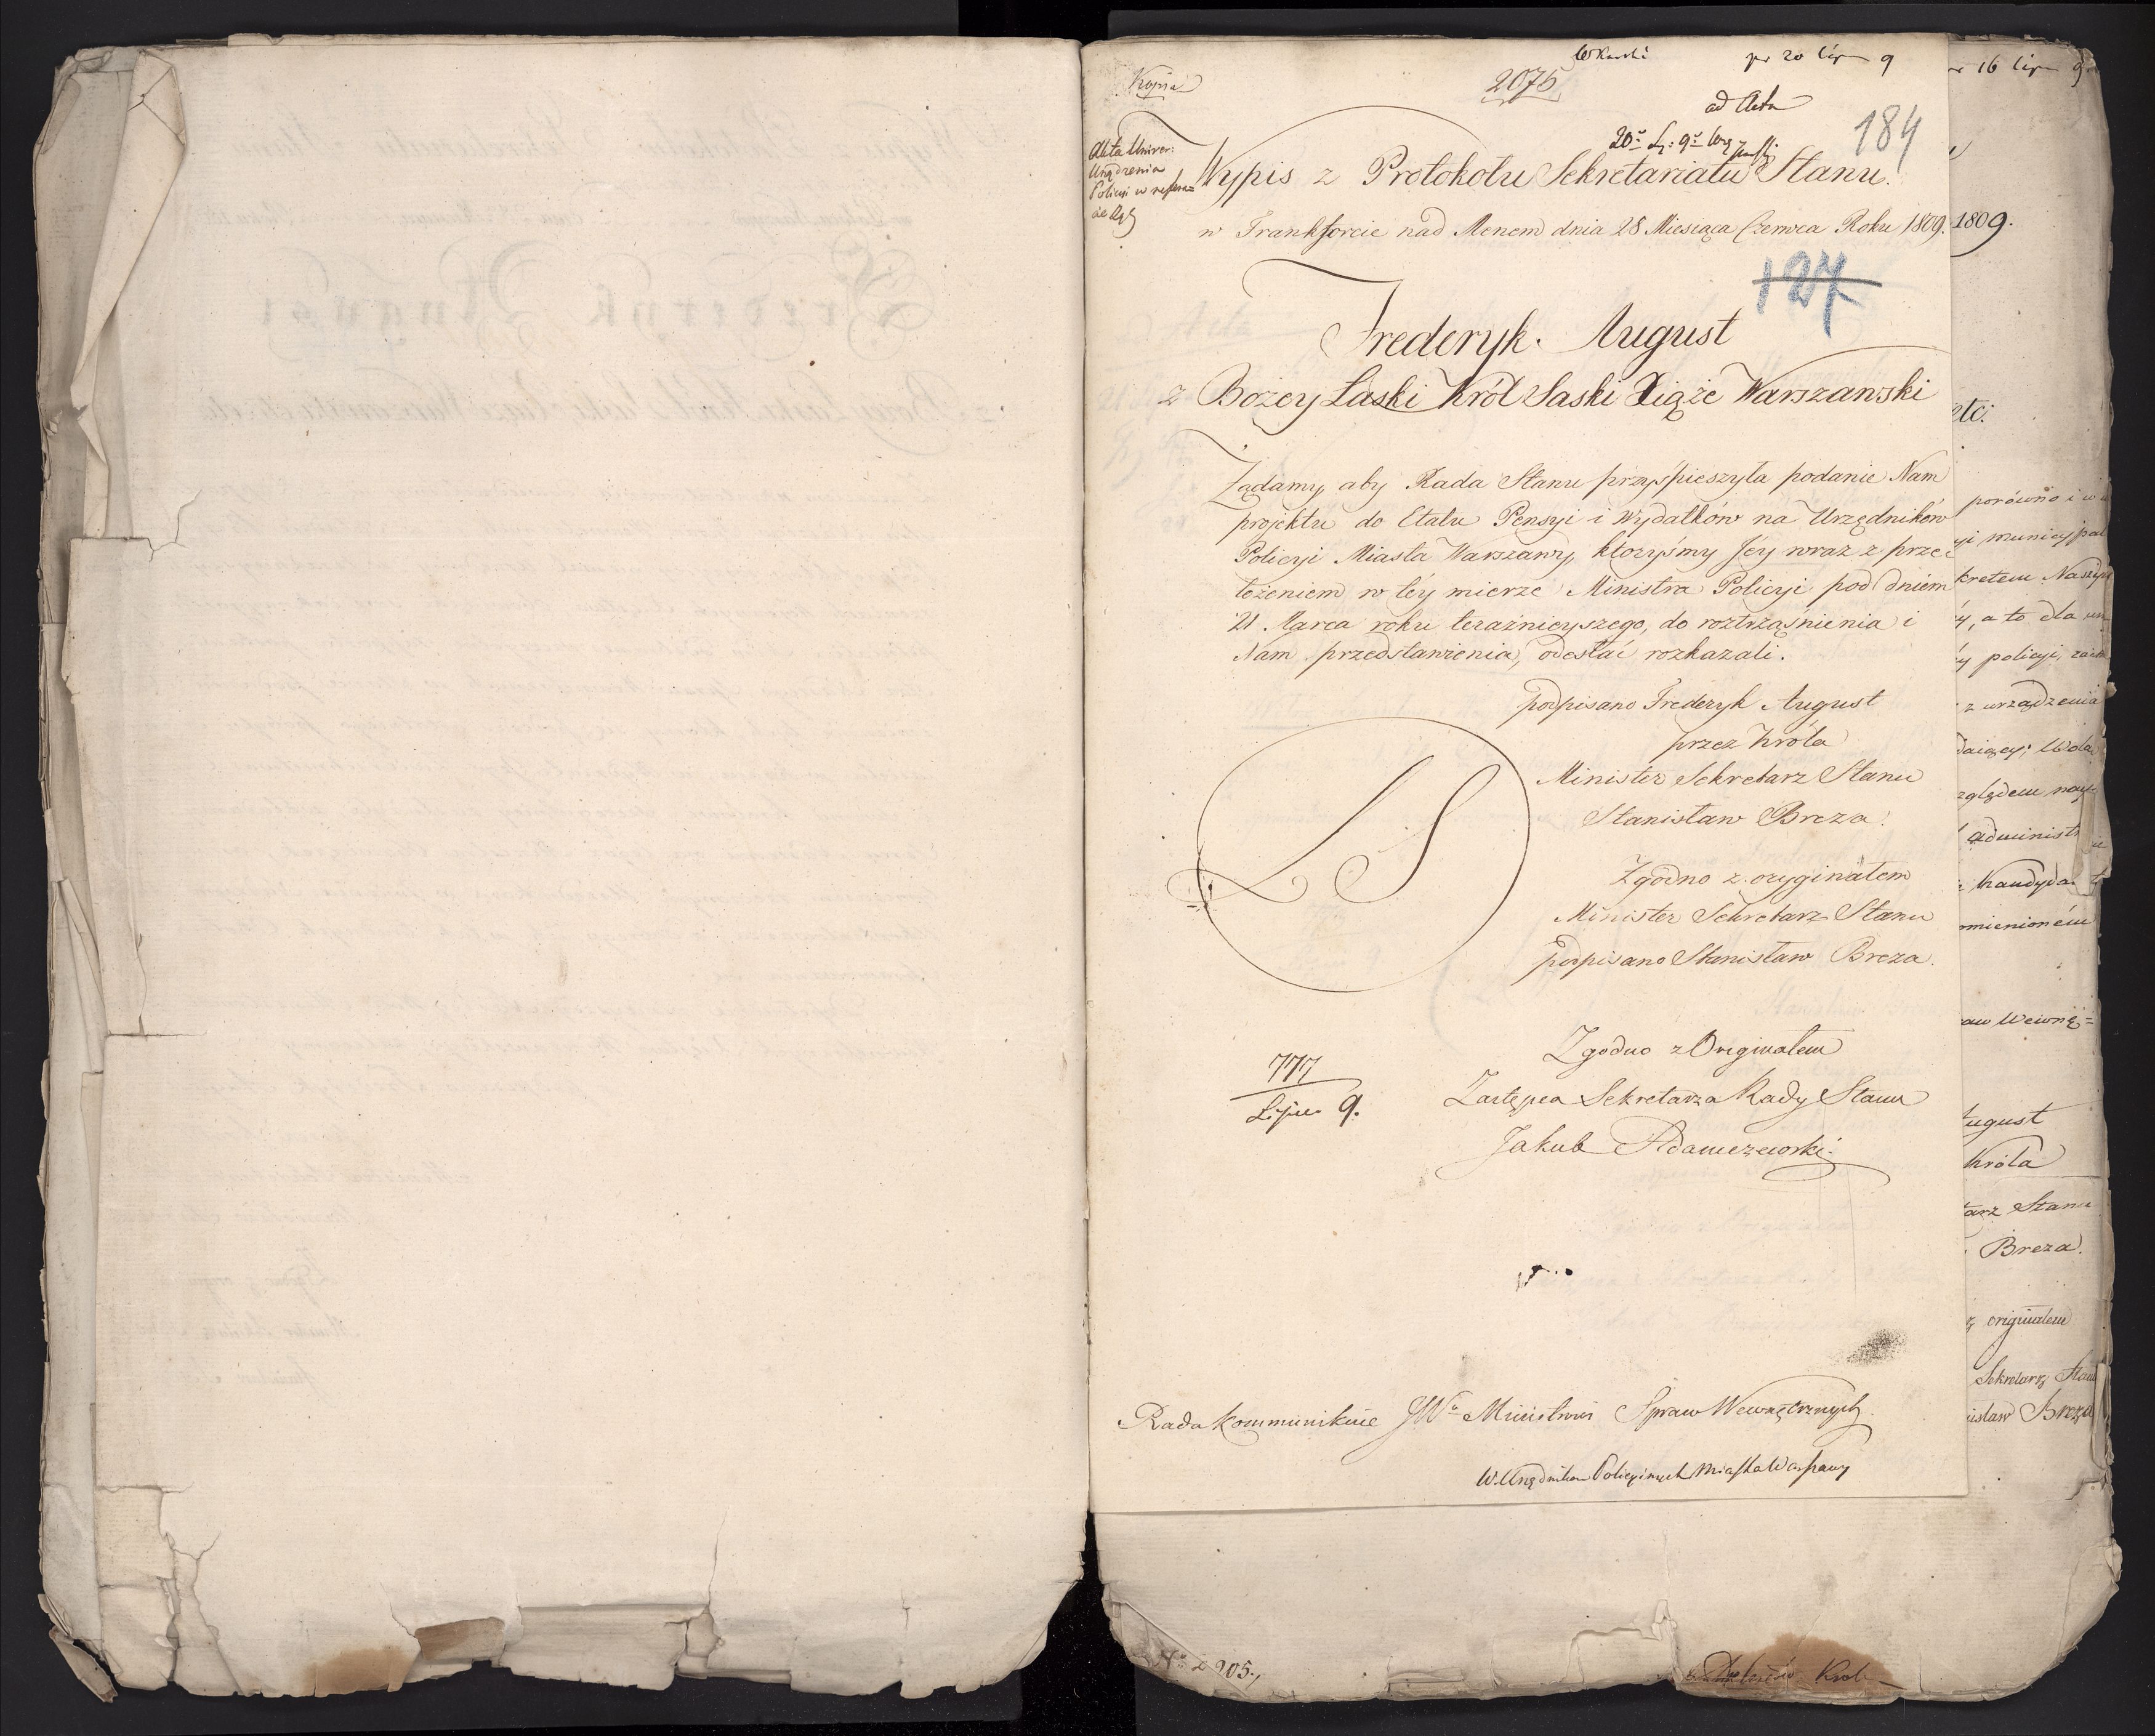 Kopia
2075
pr 20 Lip 9
ad Acta
184
Acta Univer:
Urządzenia
Policyi w
Wypis z Protokołu Sekretariatu Stanu.
w Frankforcie nad Menem dnia 28 Miesiąca Czerwca Roku 1809.
127
Frederyk August
z Bożey Łaski Król Saski Xiąże Warszawski
Żądamy, aby Rada Stanu przyśpieszyła podanie Nam
projektu do Etatu Pensyi i Wydatków na Urzędników
Policyi Miasta Warszawy, któryśmy Jéy wraz z prze
łożeniem w téy mierze Ministra Policyi pod dniem
21 Marca roku teraźnieyszego, do roztrząśnienia i
Nam przedstawienia, odesłać rozkazali.
podpisano Frederyk August
przez Króla
Minister Sekretarz Stanu
Stanisław Breza.
L S
Zgodno z oryginałem
Minister Sekretarz Stanu
podpisano Stanisław Breza.
Zgodno z Originałem
Zastępca Sekretarza Rady Stanu
Jakub Adamczewski.
777
Lipca 9.
Rada kommunikuie JW Ministrowi Spraw Wewnętrznych
Policyinych Miasta Warszawy
16 Lip 9
1809.
etc:
porówno i w
yi municypal
kretem Naszym
éy, a to dla
éy policyi,
z urządzenia
daiącey;
zględem nay-
administr
Kandyda
omienioném
aw Wewnę=
August
Króla
tarz Stanu
Breza.
z originałem
Sekretarz Stanu
isław Breza
205.